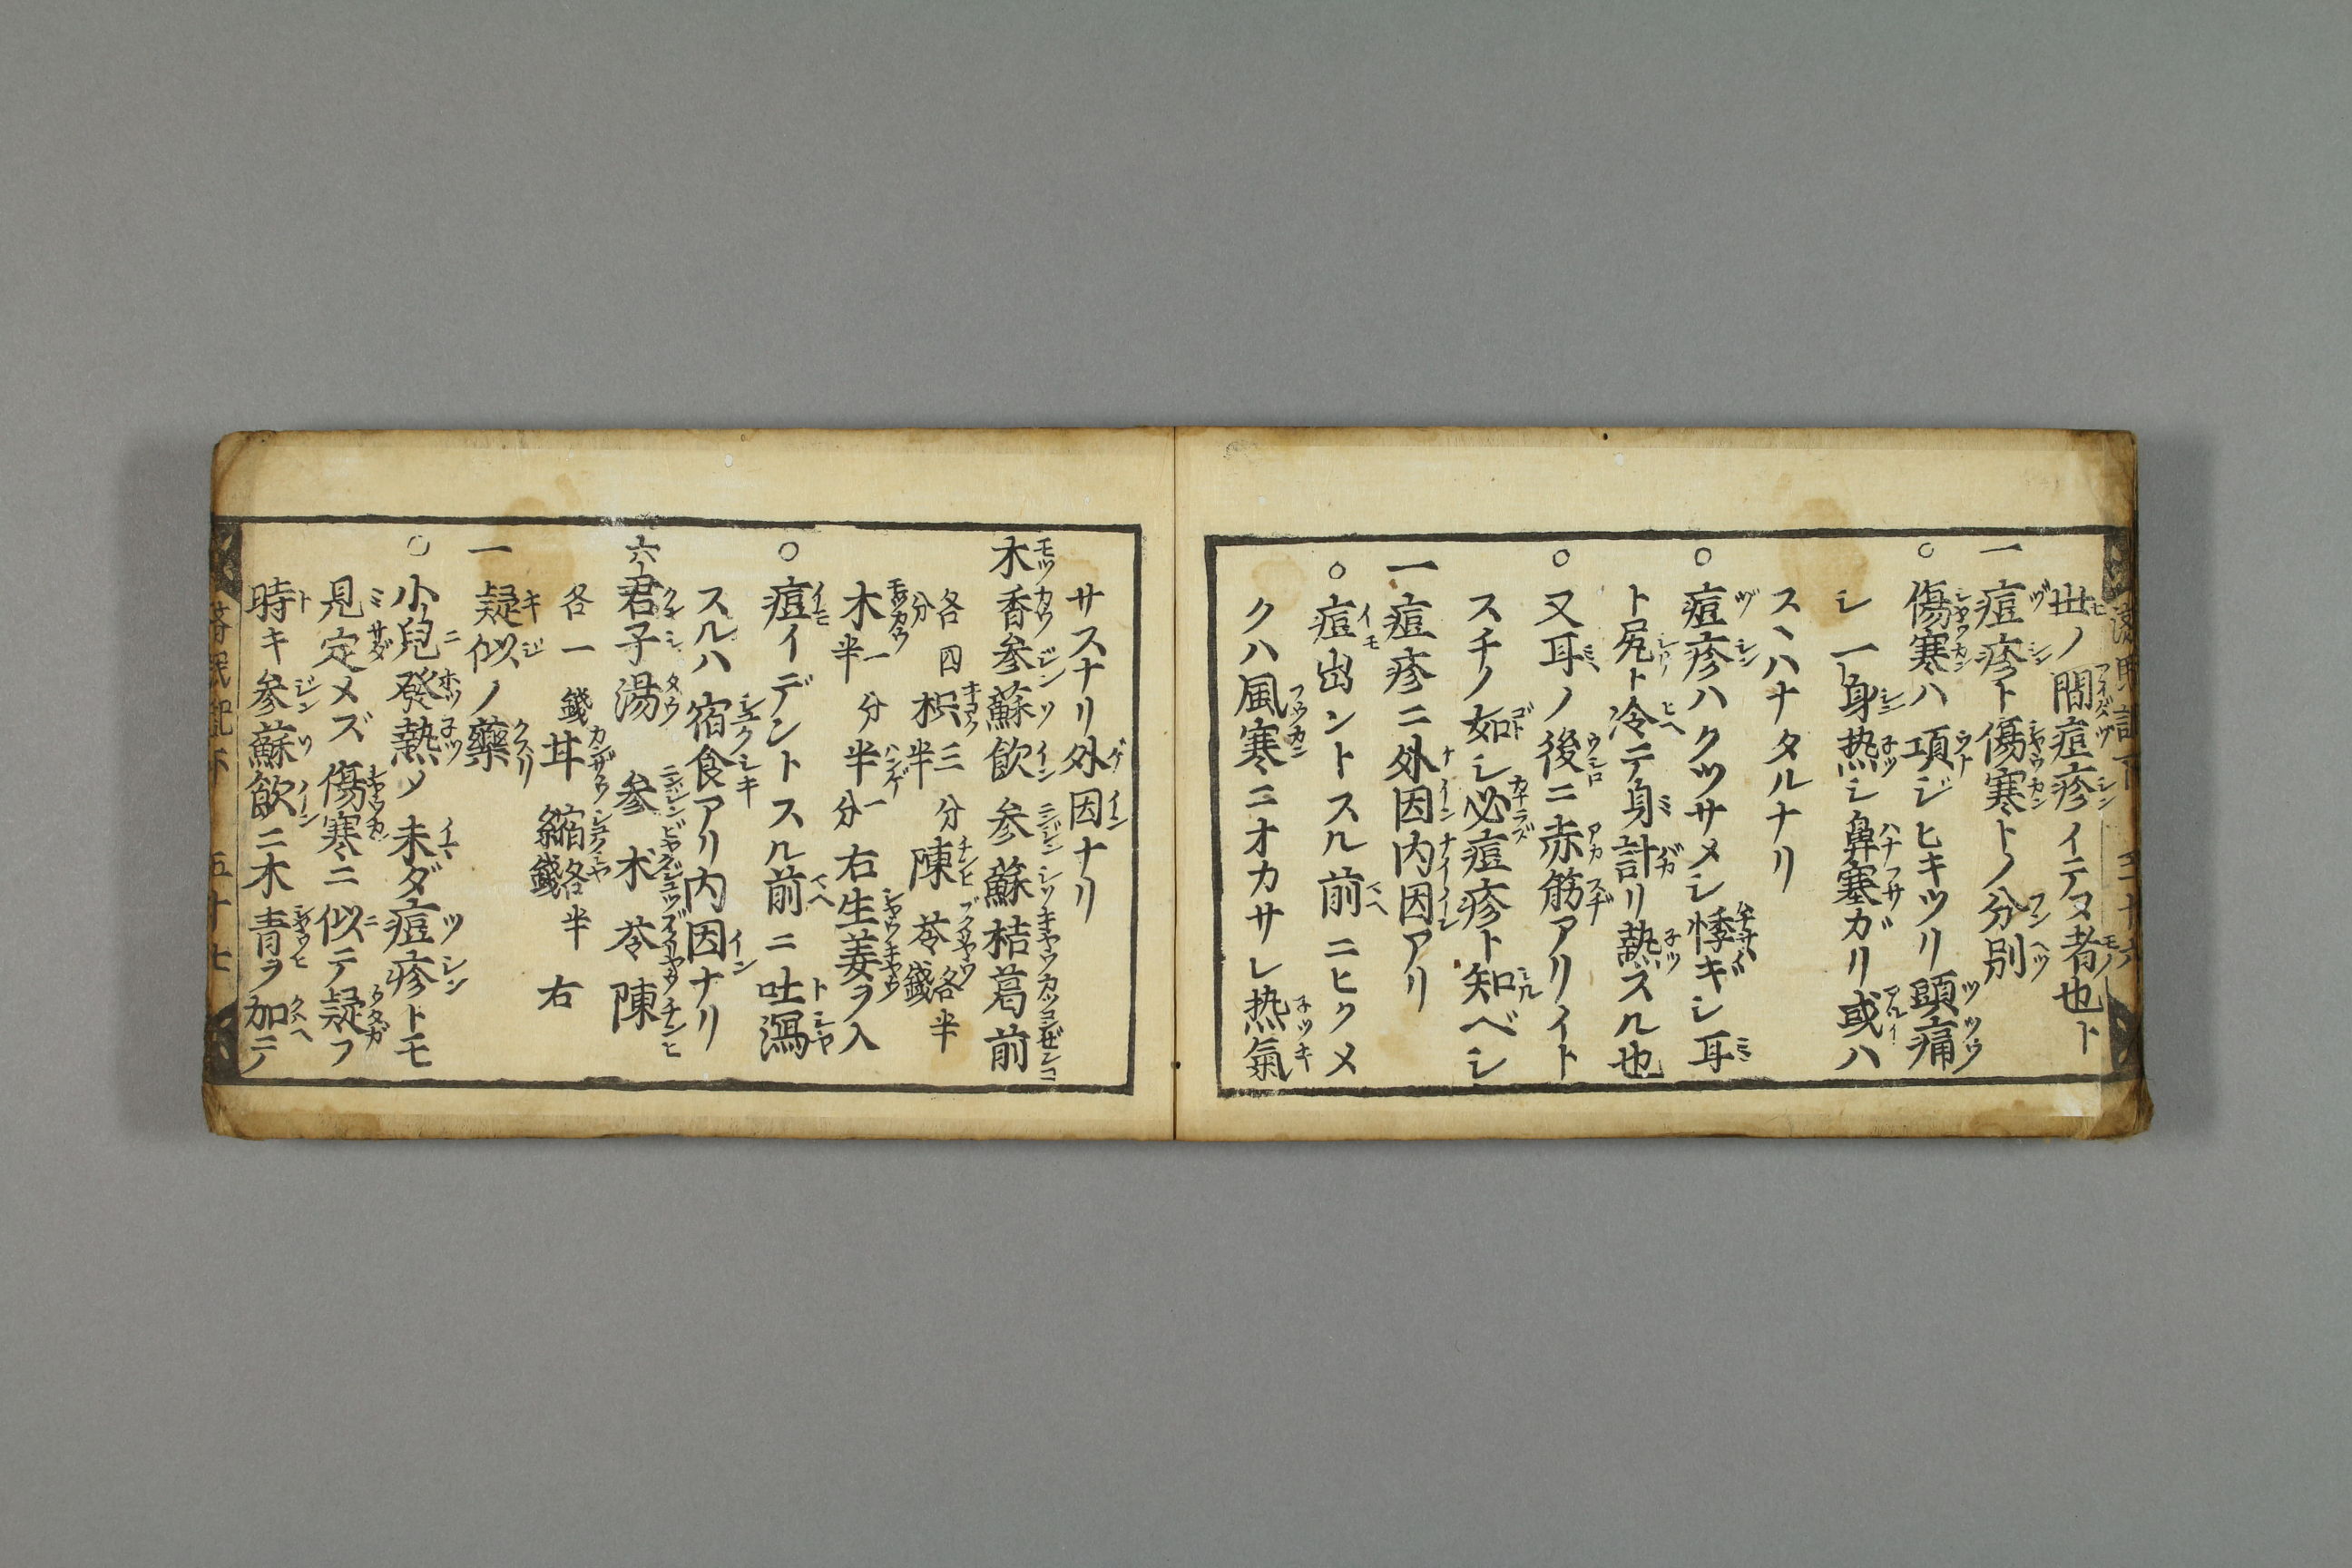 世ノ間痘疹イテヌ者也ト
一痘疹ト傷寒トノ分別
○傷寒ハ項ジヒキツリ頭痛
シ一身热シ鼻塞ガリ或ハ
スヽハナタルナリ
○痘疹ハクツサメシ悸ギシ耳
ト尻ト冷テ身計リ熱スル也
○又耳ノ後ニ赤筋アリイト
スチノ如シ必痘疹ト知ベシ
一痘疹ニ外因内因アリ
○痘出ントスル前ニヒクメ
クハ風寒ニオカサレ热氣
サスナリ外因ナリ
木香参蘇飲 参蘇桔葛前
各四分枳半三分陳苓各半錢
木半一分半一分右生姜ヲ入
○痘イデントスル前ニ吐瀉
スルハ宿食アリ内因ナリ
六君子湯 参朮苓陳
各一錢甘縮各半錢右
一疑似ノ藥
○小兒發熱ノ未ダ痘疹トモ
見定メズ傷寒ニ似テ疑フ
時キ参蘇飲ニ木青ヲ加テ
五十七